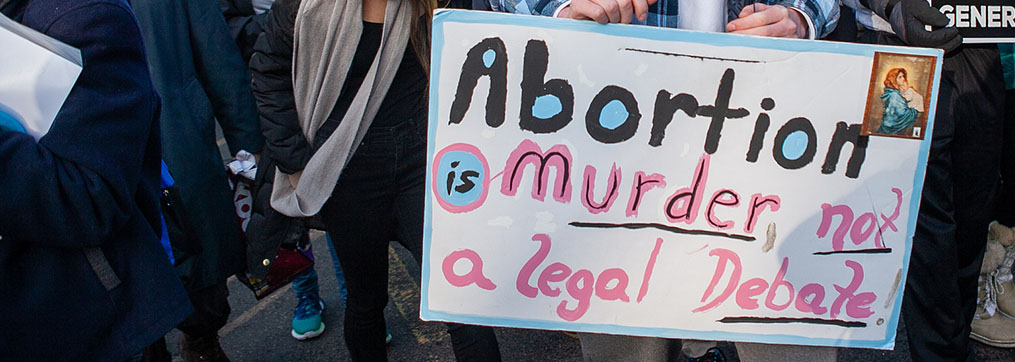 GENER
Abortion
is Murder not
a legal Debate